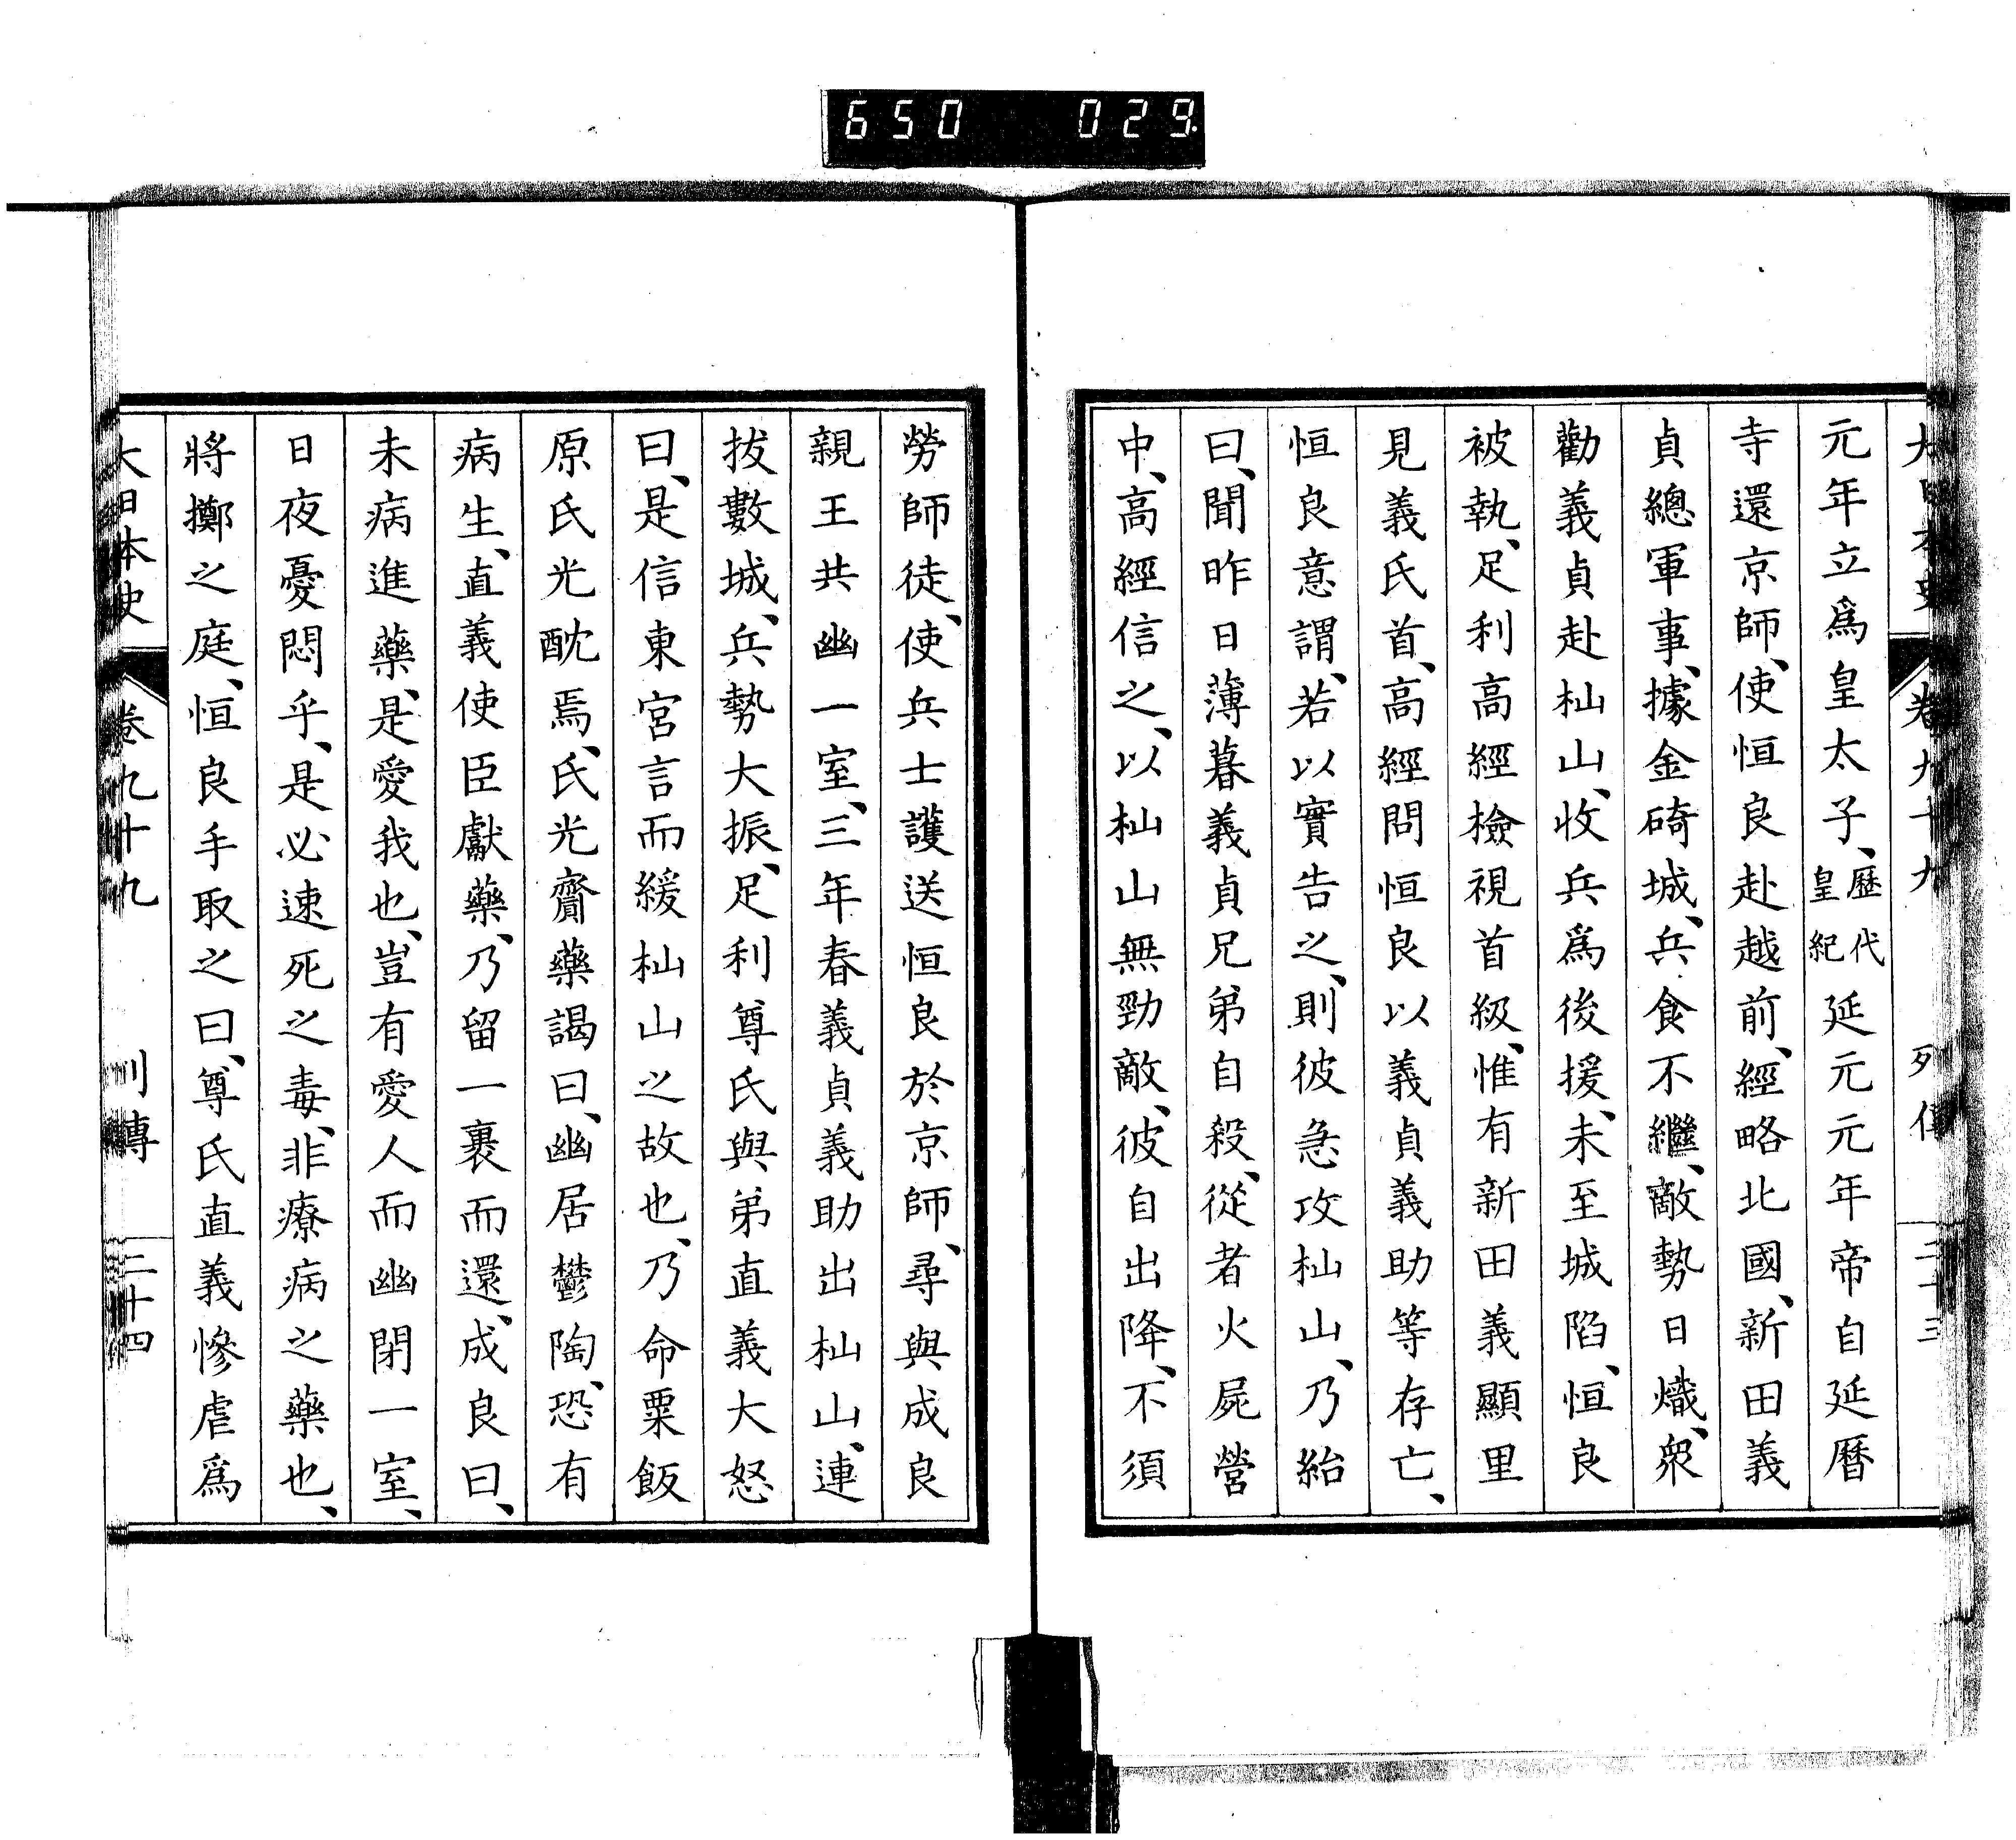 650 029
大日本史 卷九十九 列傳 二十三
元年立爲皇太子、歷代皇紀延元元年帝自延曆
寺還京師、使恒良赴越前、經略北國、新田義
貞總軍事、據金碕城、兵食不繼、敵勢日熾、衆
勸義貞赴杣山、收兵爲後援、未至城陷、恒良
被執、足利高經檢視首級、惟有新田義顯里
見義氏首、高經問恒良以義貞義助等存亡、
恒良意謂、若以實告之、則彼急攻杣山、乃紿
曰、聞昨日薄暮義貞兄弟自殺、從者火屍營
中、高經信之、以杣山無勁敵、彼自出降、不須
勞師徒、使兵士護送恒良於京師、尋與成良
親王共幽一室、三年春義貞義助出杣山、連
拔數城、兵勢大振、足利尊氏與弟直義大怒
曰、是信東宮言而緩杣山之故也、乃命粟飯
原氏光酖焉、氏光齎藥謁曰、幽居鬱陶、恐有
病生、直義使臣獻藥、乃留一裹而還、成良曰、
未病進藥、是愛我也、豈有愛人而幽閉一室、
日夜憂悶乎、是必速死之毒、非療病之藥也、
將擲之庭、恒良手取之曰、尊氏直義慘虐爲
大日本史 卷九十九 列傳 二十四